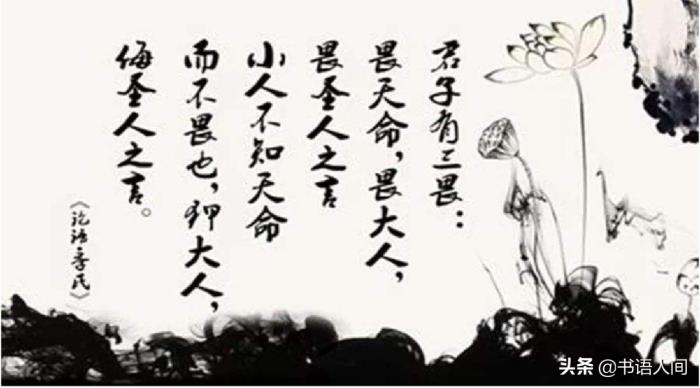 君子有三畏：
畏天命，畏大人，
畏圣人之言
小人不知天命
而不畏也，狎大人，
侮圣人之言。
《论语季氏》
头条 @书语人间